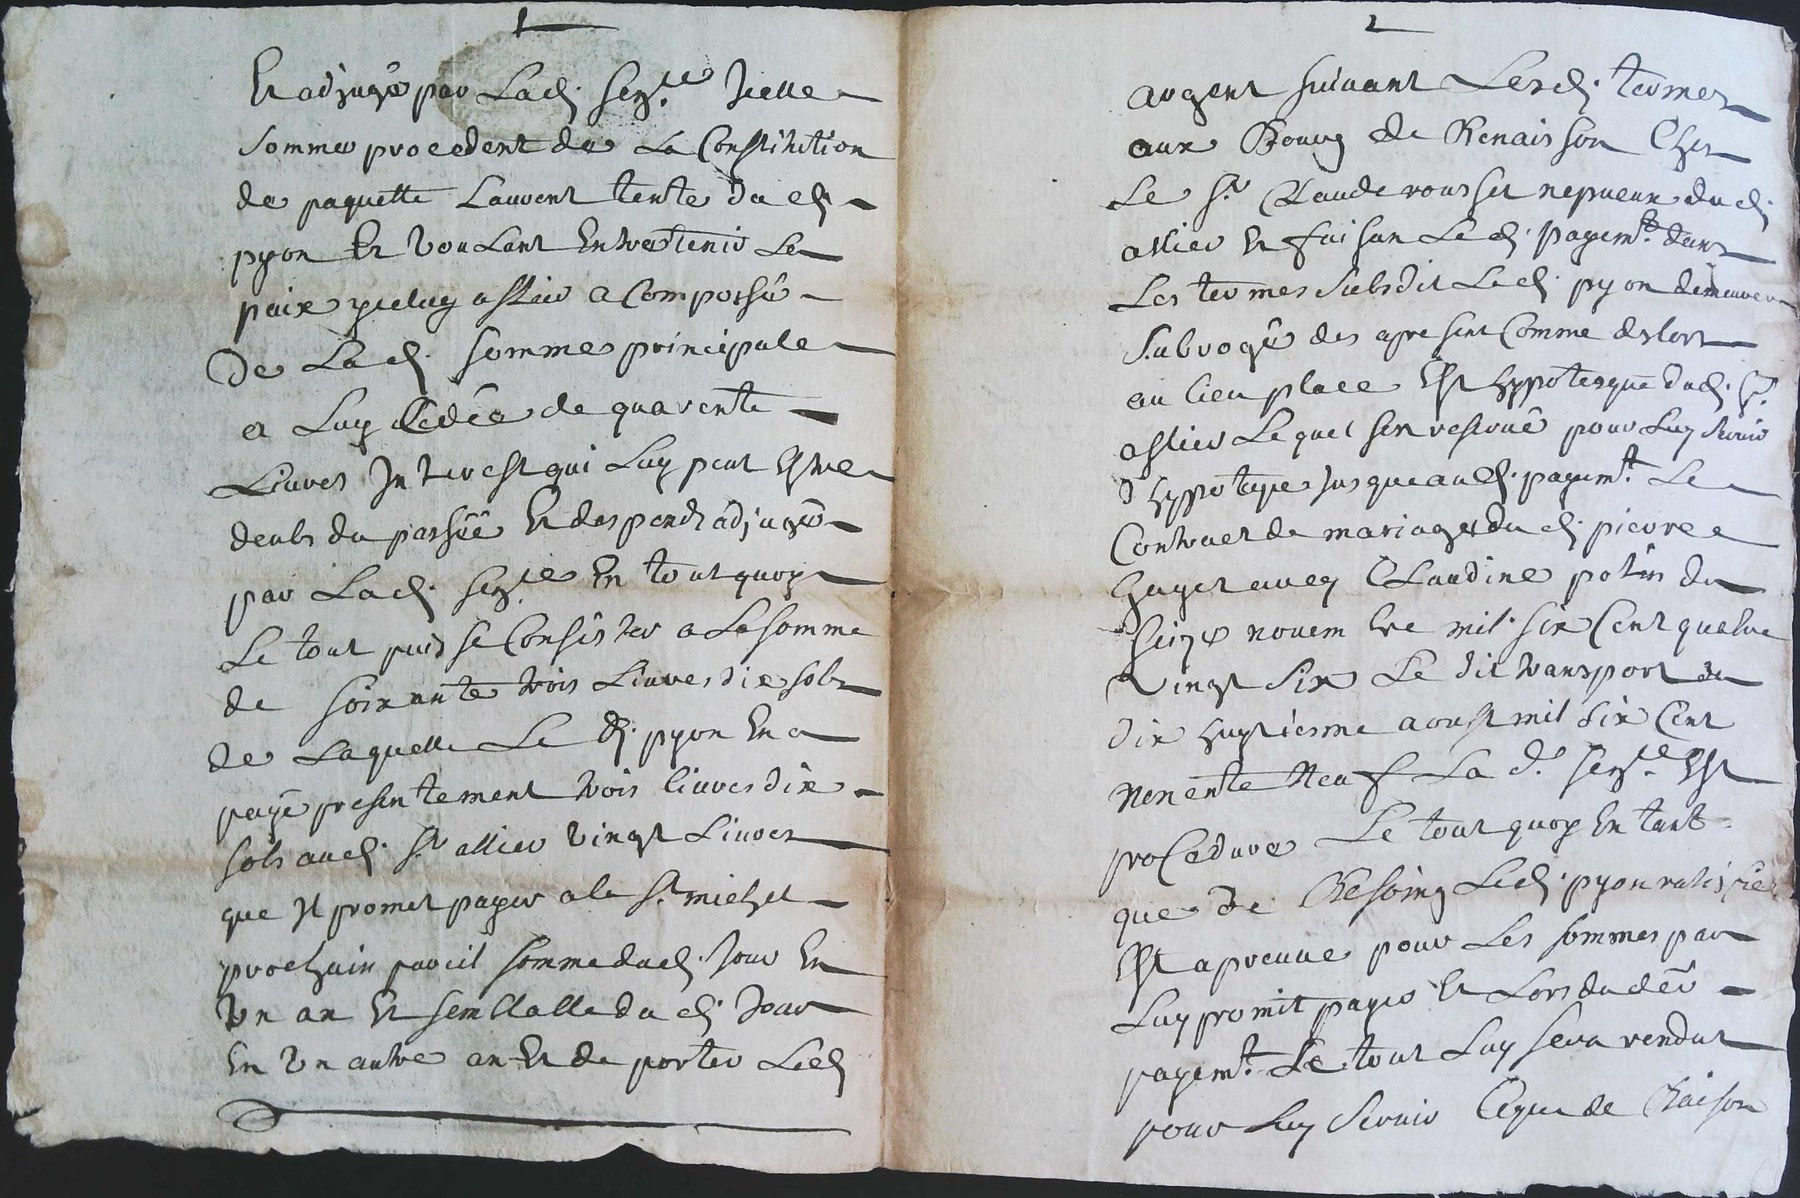 1
Et adjugé par Lad. sen.ce Icelle
Somme procedent de La Constitution
de paquette Lauvent tente du d.
pyon Et voulant Entretenir La
paix yceluy astier a Compossé
De Lad. somme principale
a Luy Cedée de quarente
Livres Interest qui Luy peut Estre
deubs du passéé Et despendz adjugéz
par Lad. sen.ce En tout quoy
Le tout puis se Consister a La somme
de soixante trois Livres dix sols
de Laquelle Le d. pyon En a
payé presentement trois livres dix
sols aud. Sr. astier vingt Livres
que Il promet payer a la St. michel
prochain pareil somme dud. Jour En
Un an Et semblable du d. Jour
En Un autre an Et de porter Led
2
argent suivant Lesd. termes
aux Bourg de Renaison Chez
Le Sr. Claude rousset nepueux du d.
astier En faisan Le d. payemt. dans
Les termes Subsdit Led. pyon demeurera
Subrogé des apresent Comme deslors
au lieu place Est hyppotesque dud. Sr.
astier Lequel sen reservé pour Luy Servir
d'hyppoteque Jusque aud. payemt. Le
Contract de mariage du d. pierre
Gayet avecq Claudine potin du
Seize novembre mil six Cent quatre
Vingt Six Le dit transport du
dix huytiesme aoust mil Six Cent
Nonente Neuf La d. sen.ce Est
proCedure Le tout quoy En tant
que De Besoing Led. pyon ratiffie
Est apreuve pour Les sommes par
Luy promit payer Et Lors du der
payemt. Le tout Luy sera rendut
pour Luy Servir Ceque de Raison